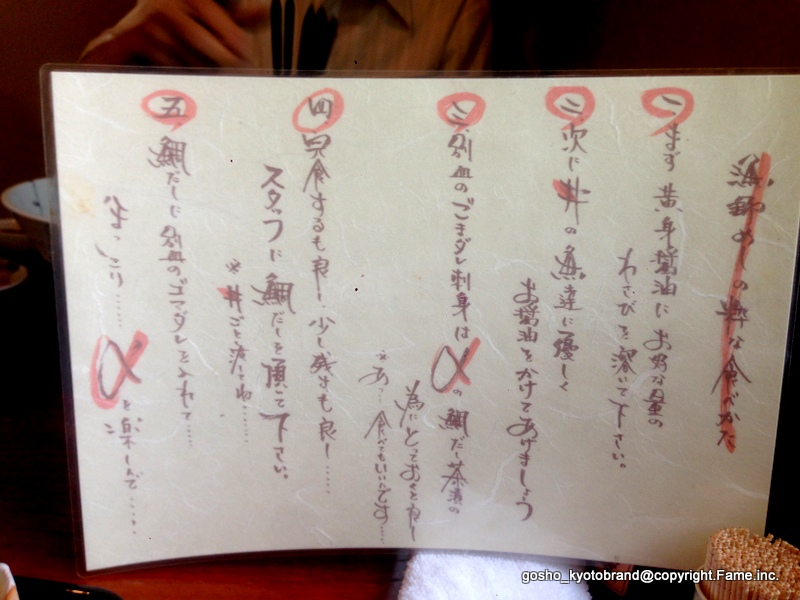 漁師めしの粋な食べかた
一 まず黄身醤油にお好な量の
わさびを溶いて下さい。
二 次に丼の魚達に優しく
お醤油をかけてあげましょう
三 別皿のごまダレ刺身は
〆の鯛だし茶漬の
為にとっておくと良し
※あ…食べてもいいんです…
四 完食するも良し、少し残すも良し……
スタッフに鯛だしを頂いて下さい。
※丼ごと渡してね……
五 鯛だしに別皿のゴマダレを入れて……
ほっこり……〆を楽しんで……
gosho_kyotobrand@copyright.Fame.inc.